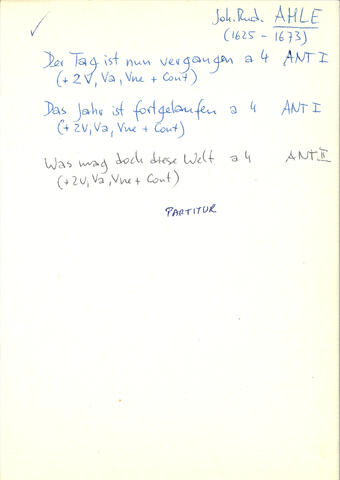 Joh. Rud. AHLE
(1625 - 1673)
Der Tag ist nun vergangen a 4 ANT I
(+ 2 V, Va, Vne + Cont)
Das Jahr ist fortgelaufen a 4 ANT I
(+ 2V, Va, Vne + Cont)
Was mag doch diese Welt a 4 ANT II
(+ 2V, Va, Vne + Cont)
PARTITUR